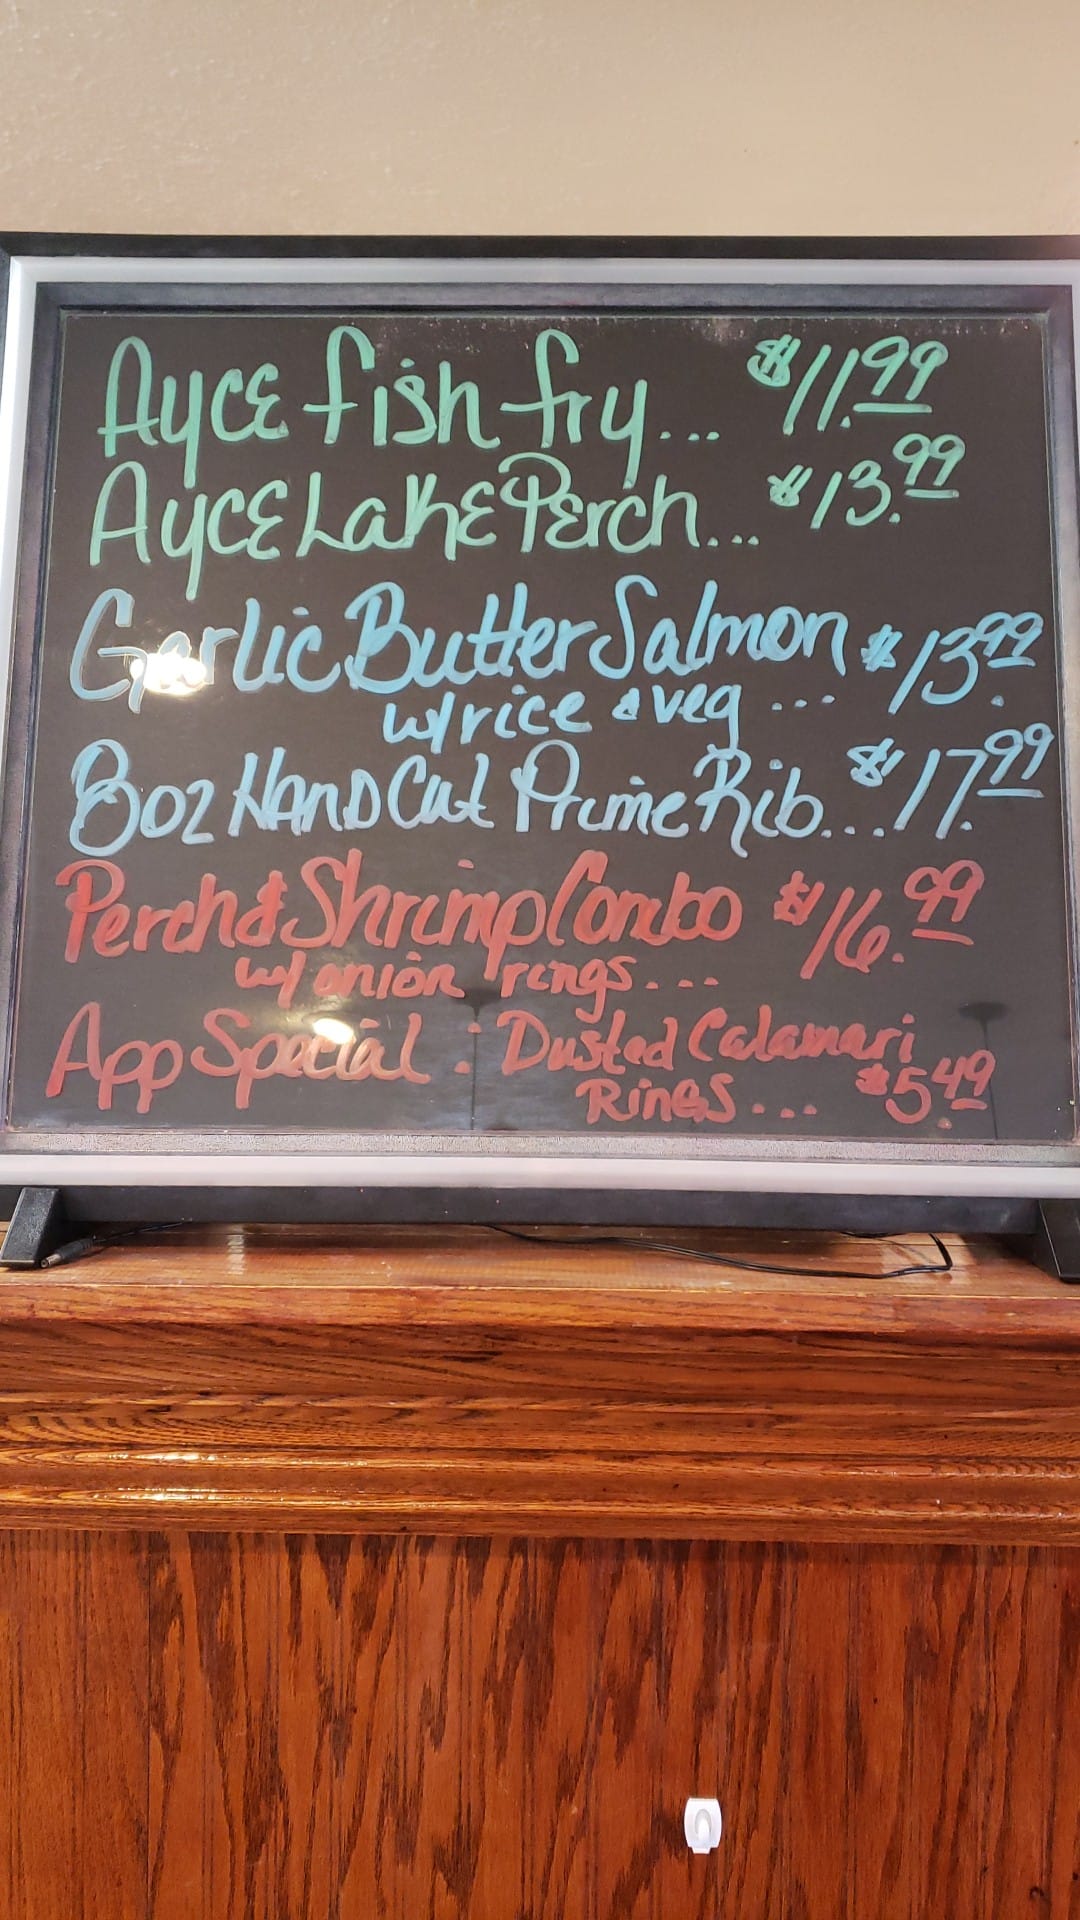 Ayce fish fry... $11.99
Ayce Lake Perch... $13.99
Garlic Butter Salmon $13.99
w/rice & veg ...
8oz Hand Cut Prime Rib... $17.99
Perch & Shrimp Combo $16.99
w/ onion rings...
App Special : Dusted Calamari
Rings... $5.49